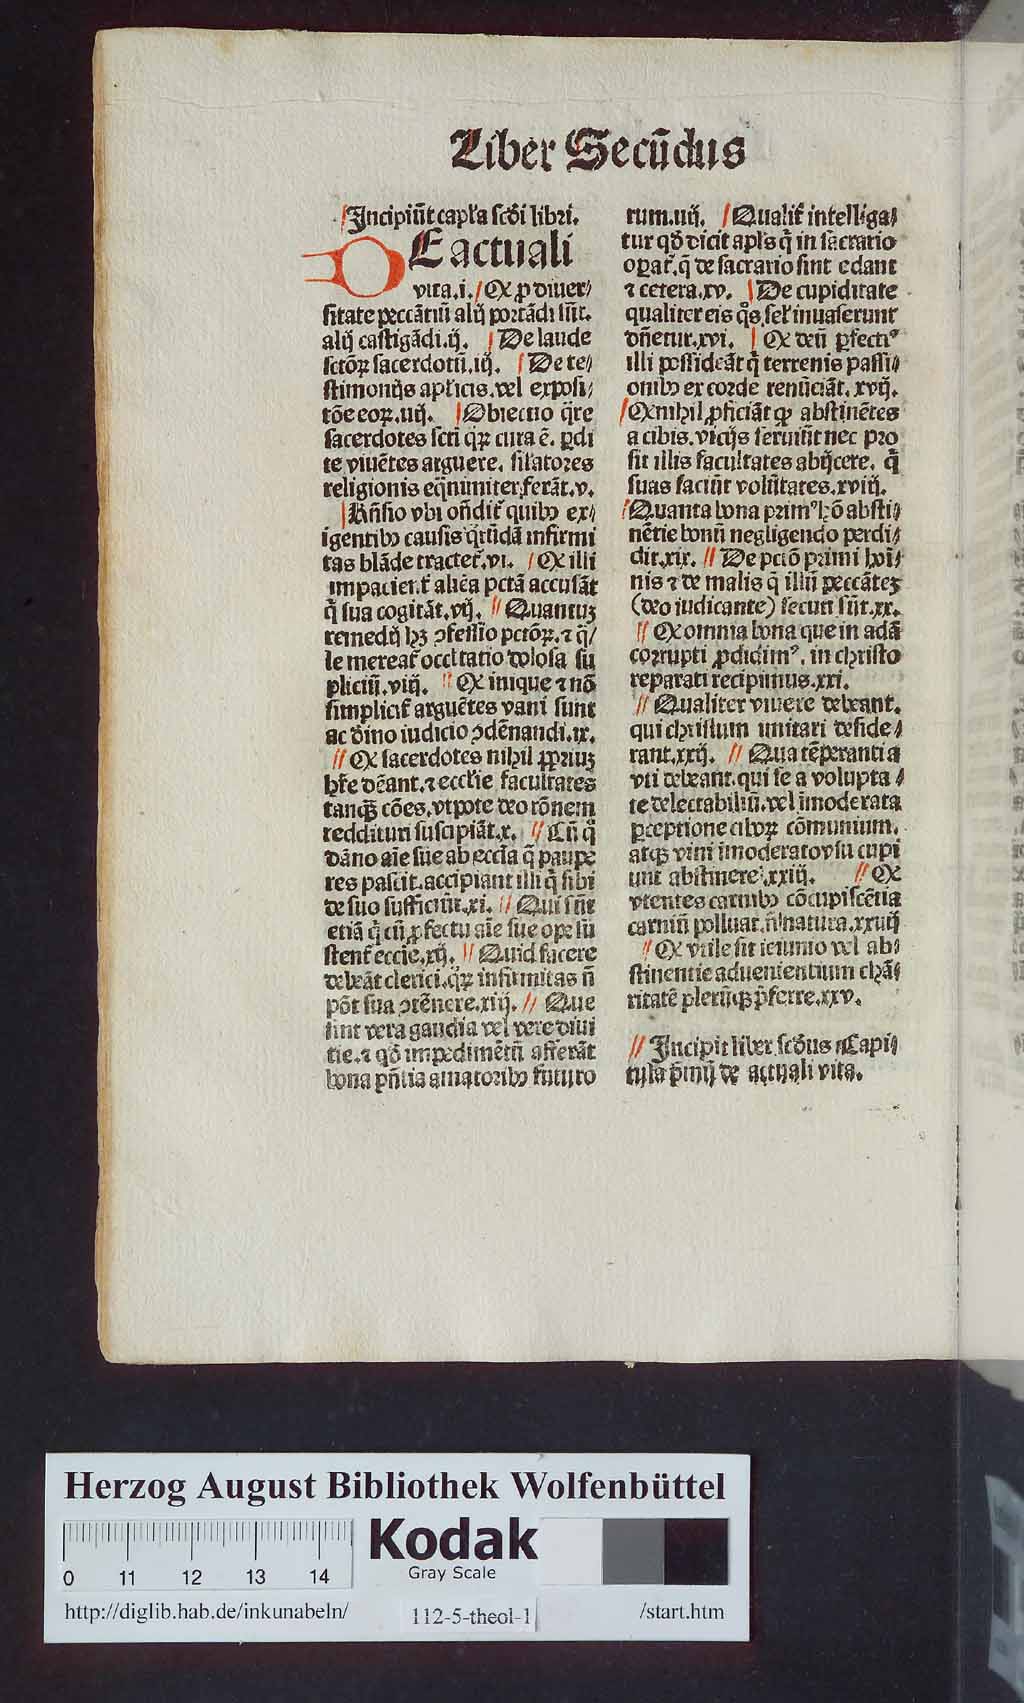 Liber Secūdus
Incipiūt capl'a scďi libri.
DE actuali
vita.i. Ꝙ ꝓ diuer⸗
sitate peccātiū alij portādi sūt.
alij castigādi.ij. De laude
sctōꝝ sacerdotū.iij. De te⸗
stimonijs apl'icis.vel exposi⸗
tōe eoꝝ.iiij. Obiectio q̄re
sacerdotes scti qꝝ cura ē. ꝑdi
te viuētes arguere. sil'atores
religionis eq̄nimiter ferāt.v.
Rn̄sio vbi on̄dit' quibꝰ ex⸗
igentibꝰ causis q̄rūdā infirmi
tas blāde tractet'.vi. Ꝙ illi
impacient' aliēa pctā accusāt
q̄ sua cogitāt.vij. Quantuꝫ
remedij hꝫ ꝯfessio pctōꝝ.⁊ q̄⸗
le mereat' occltatio dolosa su
pliciū.viij. Ꝙ inique ⁊ nō
simplicit' arguētes vani sunt
ac dīno iudicio ꝯdēnandi.ix.
Ꝙ sacerdotes nihil ꝓpriuꝫ
hr̄e dēant.⁊ eccl'ie facultates
tanqꝫ cōes.vtpote deo rōnem
reddituri suscipiāt.x. Cū q̊
dāno aīe sue ab eccl'ia q̄ paupe
res pascit.accipiant illi q̄ sibi
de suo sufficiūt.xi. Qui sūt
etiā q̄ cū ꝓfectu aīe sue ope sū
stent' eccl'ie.xij. Quid facere
debeāt clerici.qꝝ infirmitas n̄
pōt sua ꝯtēnere.xiij. Que
sint vera gaudia vel vere diui
tie.⁊ qď impedimētū afferāt
bona p̄n̄tia amatoribꝰ futuro
rum.iiij. Qualit' intelliga⸗
tur qď dicit apl's q̄ in sacrario
oꝑat'.q̄ de sacrario sint edant
⁊ cetera.xv. De cupiditate
qualiter eis q̊s sel' inuaserunt
dn̄etur.xvi. Ꝙ deū ꝑfectꝰ
illi possideāt q̄ terrenis passi⸗
onibꝰ ex corde renūciāt.xvij.
Ꝙ nihil ꝓficiāt qꝫ abstinētes
a cibis.vicijs seruiūt nec pro
sit illis facultates abijcere. q̄
suas faciūt volūtates.xviij.
Quanta bona primꝰ hō absti⸗
nētie bonū negligendo perdi⸗
dit.xix. De pctō primi hoī⸗
nis ⁊ de malis q̄ illū peccātez
(deo iudicante) secuti sūt.xx.
Ꝙ omnia bona que in adā
corrupti ꝓdidimꝰ. in christo
reparati recipimus.xxi.
Qualiter viuere debeant.
qui christum imitari deside⸗
rant.xxij. Qua tēperantia
vti debeant.qui se a volupta⸗
te delectabiliū.vel īmoderata
ꝑceptione ciboꝝ cōmunium.
atqꝫ vini īmoderatorsu cupi
unt abstinere.xxiij. Ꝙ
vtentes carnibꝰ cōcupiscētia
carniū polluat.n̄ natura.xxiiij
Ꝙ vtile sit ieiunio vel ab⸗
stinentie aduenientium chā⸗
ritatē plerūqꝫ p̄ferre.xxv.
Incipit liber scďus Capi⸗
tula p̄mij de actuali vita.
Herzog August Bibliothek Wolfenbüttel
Kodak
Gray Scale
0 11 12 13 14
http://diglib.hab.de/inkunabeln/ 112-5-theol-1 /start.htm